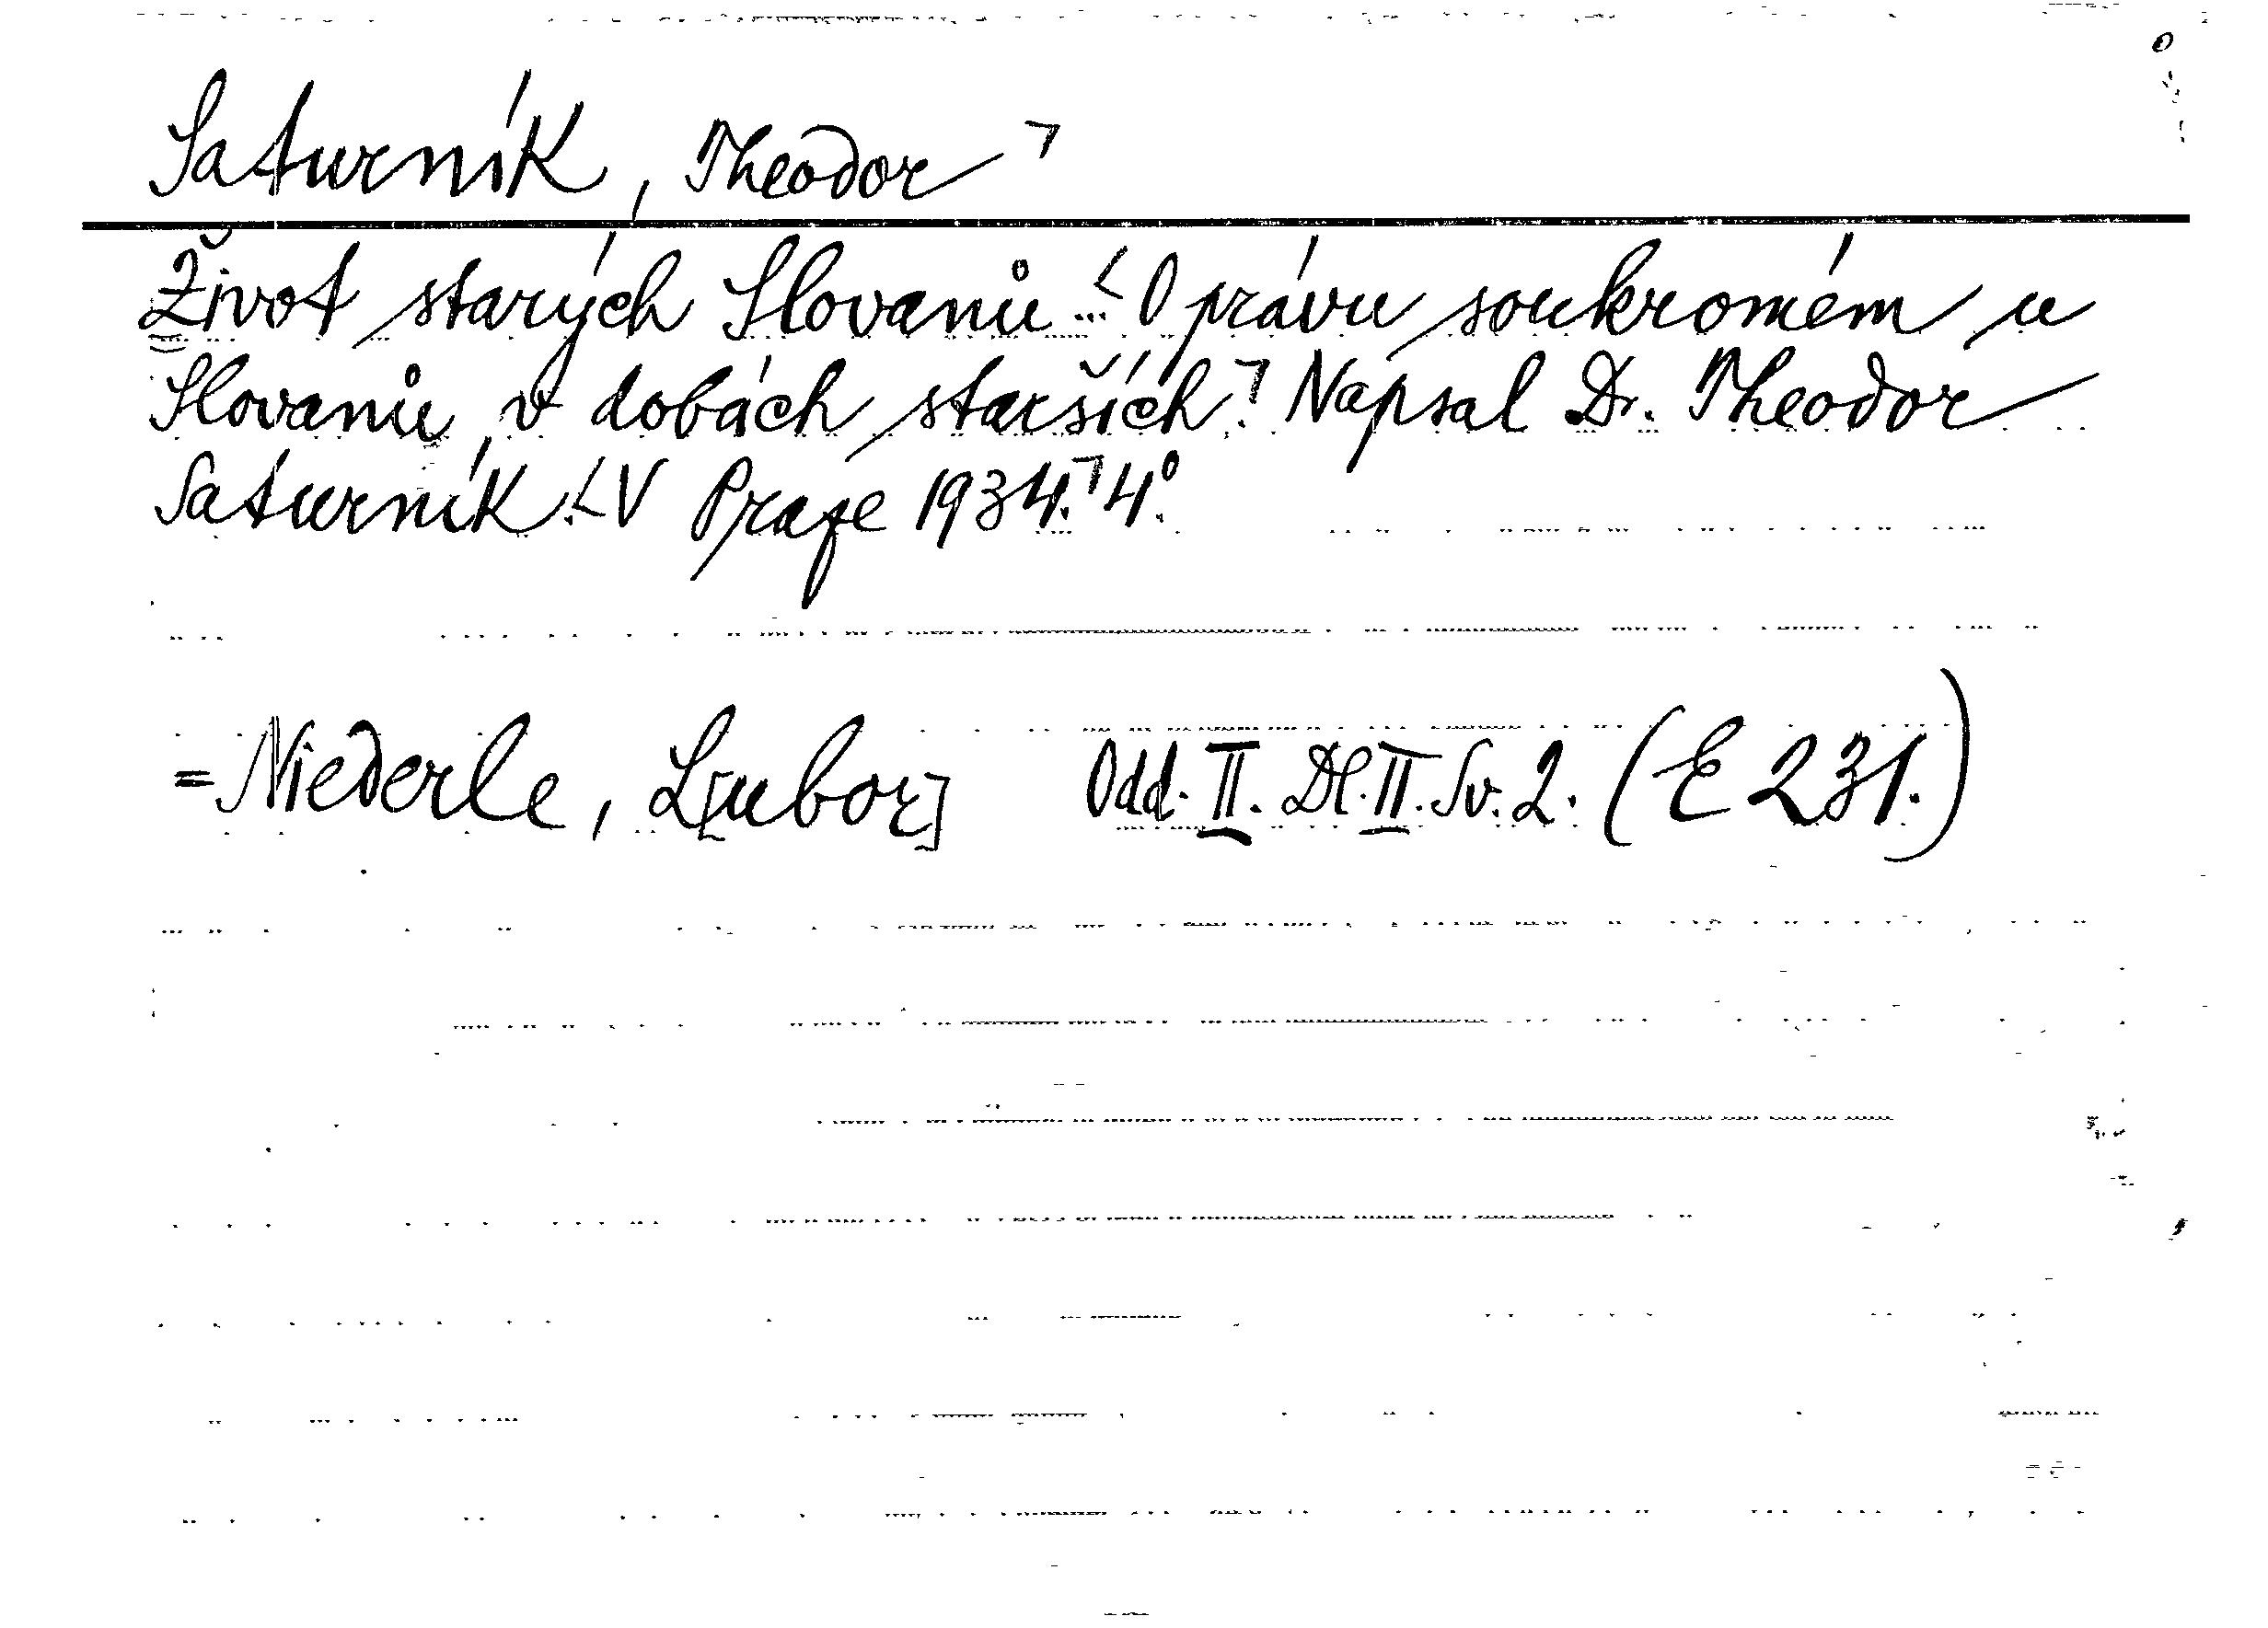 Saturník, Theodor ┐
Život starých Slovanů ... < O právu soukromém u
Slovanů v dobách starších.┐ Napsal Dr. Theodor
Saturník. < V Praze 1934.┐ 4°.
= Niederle, L[ubor] Odd. II. Dl. II. Sv. 2. (E 231.)